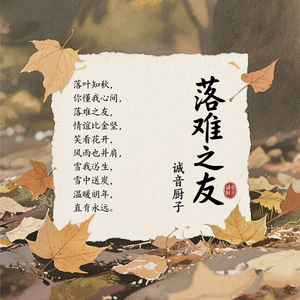 落难之友
诚音厨子
落叶知秋，
你懂我心间，
落难之友，
情谊比金坚，
笑看花开，
风雨也并肩，
雪我汹生，
雪中送炭，
温暖明年，
直有永远。